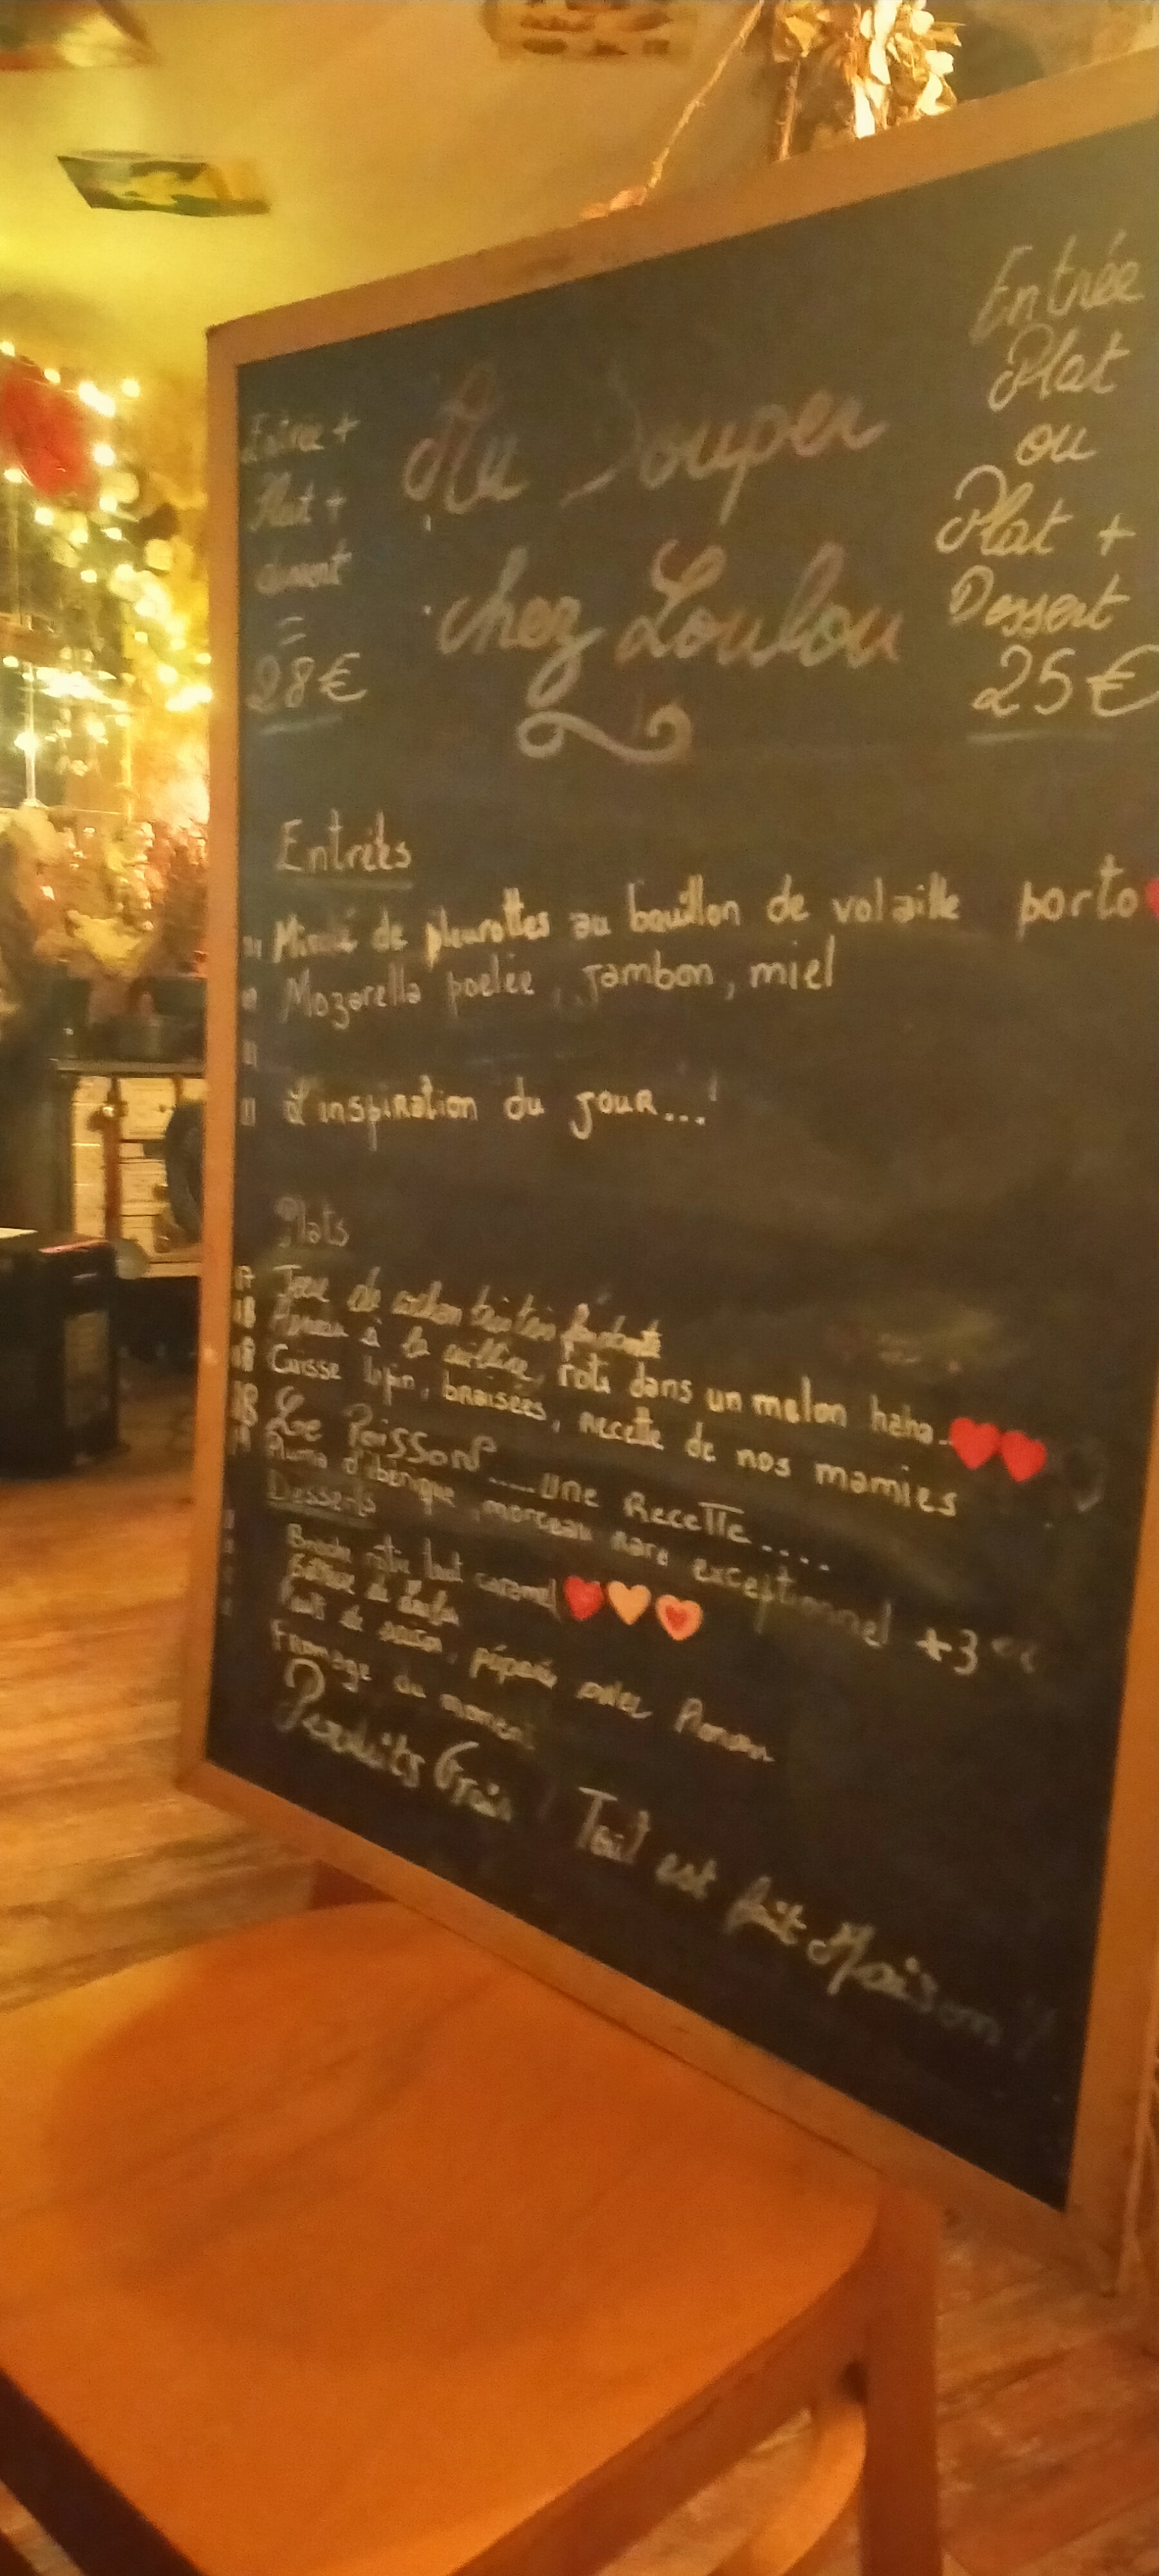 Entrée +
Plat +
dessert
=
28€
Au Souper
chez Loulou
Entrée
Plat
ou
Plat +
Dessert
25€
Entrées
11 de pleurottes au bouillon de volaille porto
Mozarella poelée, Jambon, miel
11
11 L'inspiration du JOUR...!
Plats
17 Joue de cochon
18 à la cuillère, roti dans un melon haha..
18 Cuisse lapin, braisées, recette de nos mamies
18 Le Poisson.....Une Recette....
Pluma d'ibérique, morceau rare exceptionnel +3
Desserts
rotie tout caramel
de saison, avec
Fromage du moment
Produits Frais Tout est fait Maison !